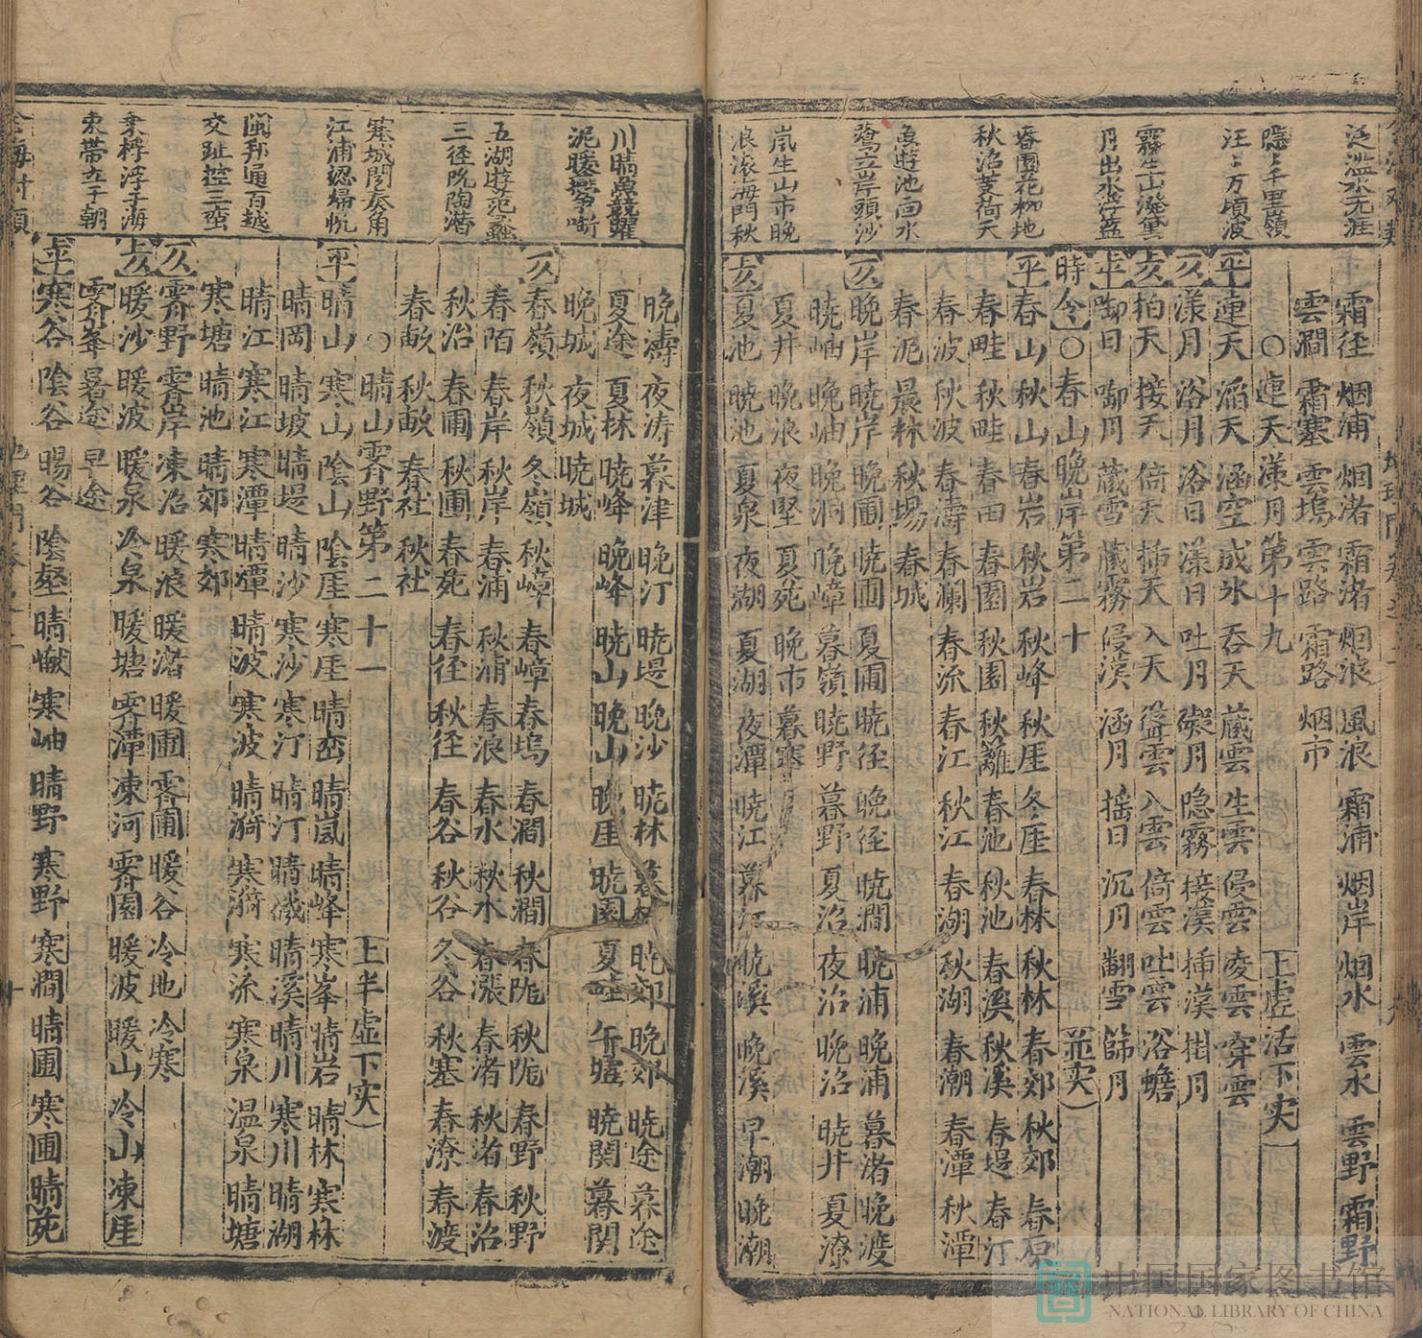 泛滥水无涯
隱〻千里嶺
汪〻万頃波
霧生山潑黛
月出水浮藍
春園花柳地
秋沼芰荷天
魚遊池面水
鷺立岸頭沙
嵐生山市晚
浪滚海門秋
霜径 烟浦 烟渚 霜渚 烟浪 風浪 霜浦 烟岸 烟水 雲水 雲野 霜野
雲澗 霜塞 雲塢 雲路 霜路 烟市
○連天漾月第十九 上虚活下实
平 連天 滔天 涵空 成氷 吞天 蔵雲 生雲 侵雲 凌雲 穿雲
仄 漾月 浴月 浴日 漾日 吐月 礙月 隐霧 接漢 插漢 掛月
去仄 拍天 接天 倚天 插天 入天 聳雲 入雲 倚雲 吐雲 浴蟾
上平 啣日 啣月 蔵雪 蔵霧 侵漢 涵月 摇日 沉月 翻雪 篩月
時令○春山晚岸第二十 並实
平 春山 秋山 春岩 秋岩 秋峰 秋厓 冬厓 春林 秋林 春郊 秋郊 春原
春畦 秋畦 春田 春園 秋園 秋籬 春池 秋池 春溪 秋溪 春堤 春汀
春波 秋波 春濤 春瀾 春流 春江 秋江 春湖 秋湖 春潮 春潭 秋潭
春泥 晨林 秋場 春城
仄 晚岸 暁岸 晚圃 暁圃 夏圃 暁径 晚径 暁澗 暁浦 晚浦 暮渚 晚渡
暁岫 晚岫 晚洞 晚嶂 暮嶺 暁野 暮野 夏沼 夜沼 晚沼 暁井 夏潦
夏井 晚浪 夜壑 夏苑 晚市 暮塞
去仄 夏池 暁池 夏泉 夜湖 夏湖 夜潭 暁江 暮江 暁溪 晚溪 早潮 晚潮
川晴魚競躍
泥暖燕争啣
五湖遊范蠡
三径阮陶潜
寒城閑奏角
江浦認帰帆
閩邦通百越
交趾控三蛮
乗桴浮于海
束帯立于朝
晚濤 夜涛 暮津 晚汀 暁堤 晚沙 暁林 暮林 暁郊 晚郊 暁途 暮途
夏途 夏林 暁峰 晚峰 暁山 晚山 晚厓 暁園 夏畦 午墟 暁関 暮関
晚城 夜城 暁城
仄 春嶺 秋嶺 冬嶺 秋嶂 春嶂 春塢 春澗 秋澗 春陇 秋陇 春野 秋野
春陌 春岸 秋岸 春浦 秋浦 春浪 春水 秋水 春漲 春渚 秋渚 春沼
秋沼 春圃 秋圃 春苑 春径 秋径 春谷 秋谷 冬谷 秋塞 春潦 春渡
春畝 秋畝 春社 秋社
○晴山霽野第二十一 上半虚下实
平 晴山 寒山 陰山 陰厓 寒厓 晴峦 晴嵐 晴峰 寒峯 晴岩 晴林 寒林
晴岡 晴坡 晴堤 晴沙 寒沙 寒汀 晴汀 晴磯 晴溪 晴川 寒川 晴湖
晴江 寒江 寒潭 晴潭 晴波 寒波 晴漪 寒漪 寒流 寒泉 温泉 晴塘
寒塘 晴池 晴郊 寒郊
仄 霽野 霽岸 凍沼 暖浪 暖渚 暖圃 霽圃 暖谷 冷地 冷寒
去仄 暖沙 暖波 暖泉 冷泉 暖塘 霽潭 凍河 霽園 暖波 暖山 冷山 凍厓
霽峯 暑途 早途
上平 寒谷 陰谷 暘谷 陰壑 晴巘 寒岫 晴野 寒野 寒澗 晴圃 寒圃 晴苑
中国国家图书馆
NATIONAL LIBRARY OF CHINA